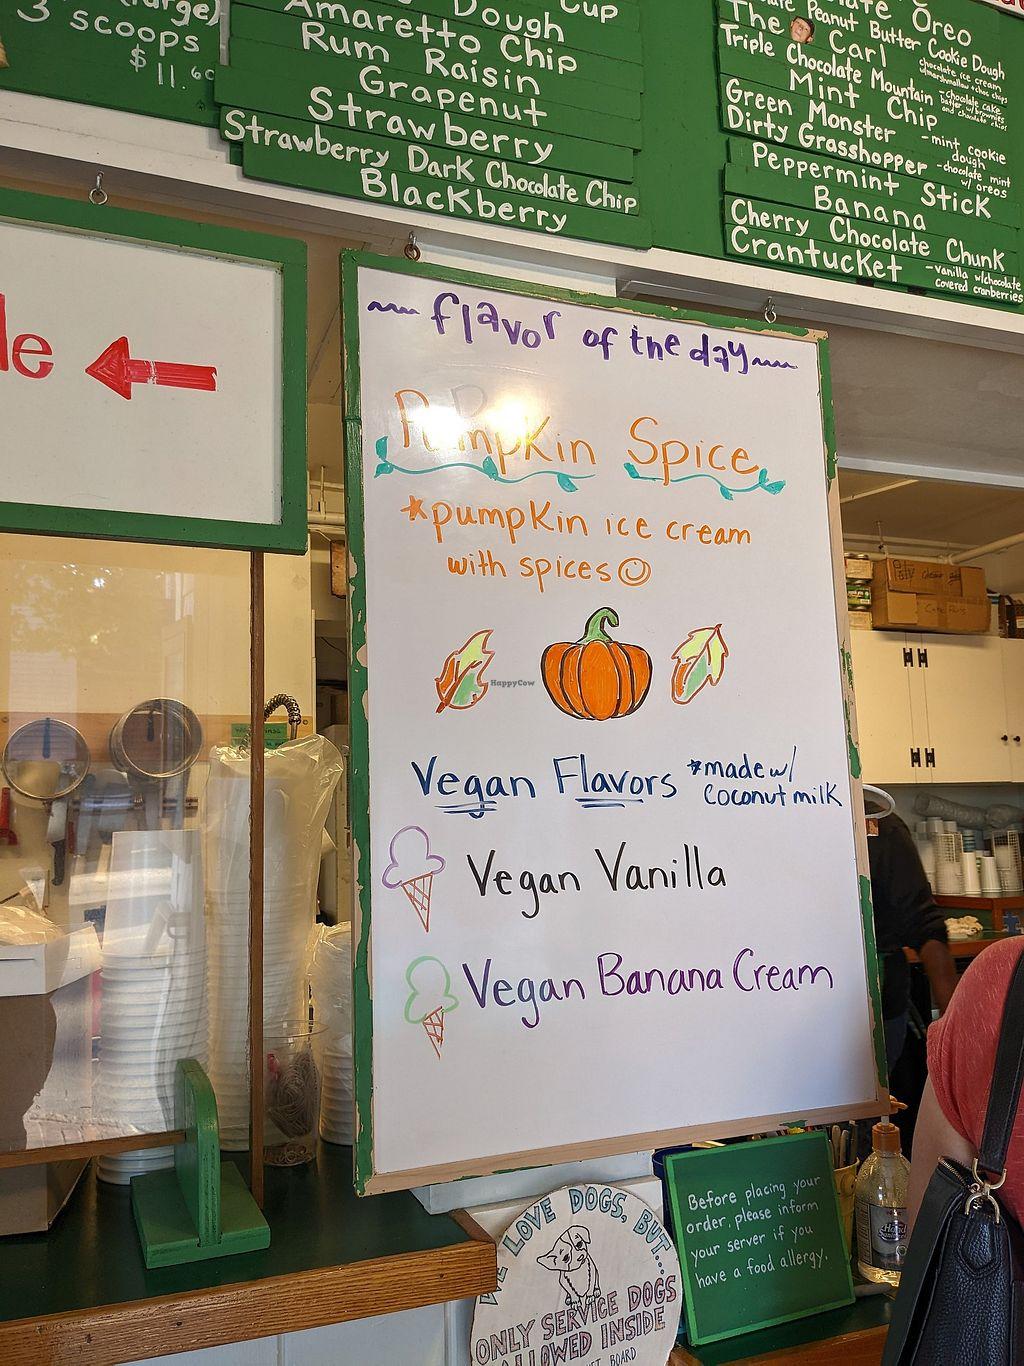 3 scoops
$ 11.60
Cup
Dough
Amaretto Chip
Rum Raisin
Grapenut
Strawberry
Strawberry Dark Chocolate Chip
Blackberry
Oreo
Peanut Butter Cookie Dough
The Carl
chocolate ice cream
w/marshmallow + choc chips
Triple Chocolate Mountain
-chocolate cake
batter w/brownies
and chocolate chips
Mint Chip
Green Monster -mint cookie
dough
Dirty Grasshopper -chocolate mint
w/ oreos
Peppermint Stick
Banana
Cherry Chocolate Chunk
Crantucket -vanilla w/chocolate
covered cranberries
flavor of the day
Pumpkin Spice
*pumpkin ice cream
with spices
HappyCow
Vegan Flavors *made w/
coconut milk
Vegan Vanilla
Vegan Banana Cream
Before placing your
order, please inform
your server if you
have a food allergy.
LOVE DOGS, BUT....
ONLY SERVICE DOGS
ALLOWED INSIDE
BOARD